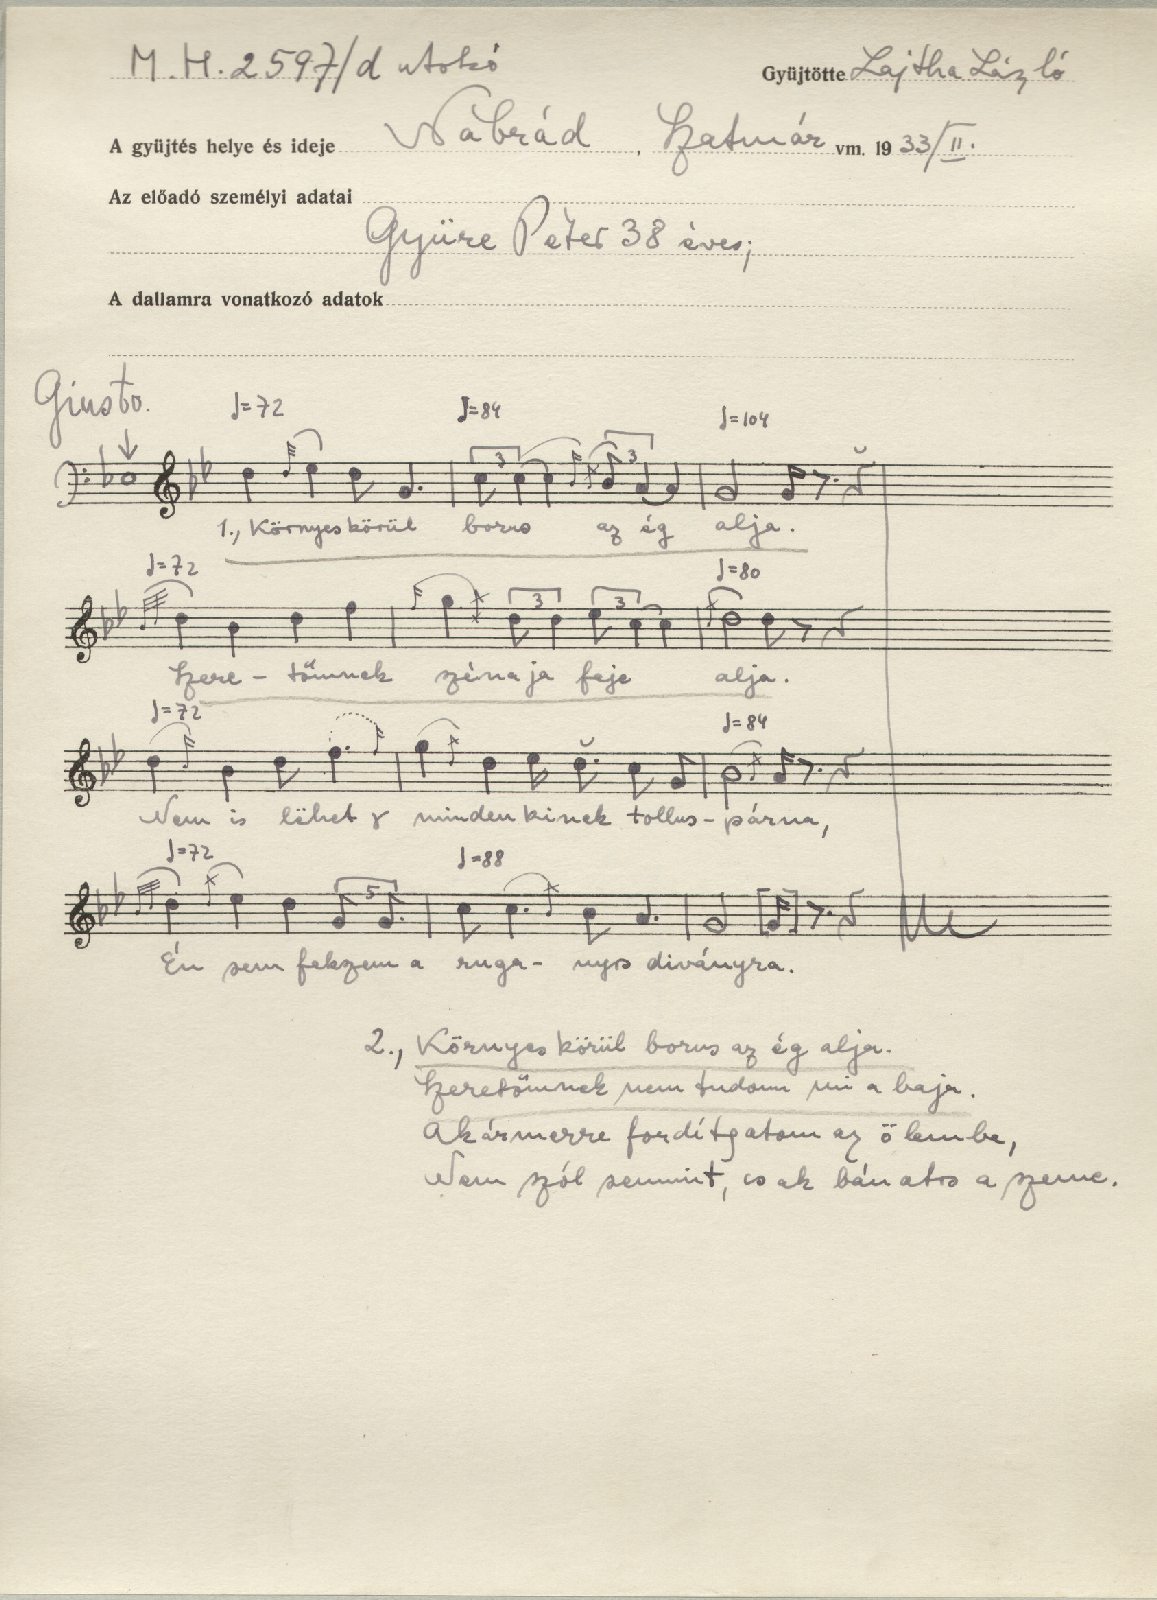 M.H. 2597/d utolsó Gyüjtötte Lajtha László
A gyüjtés helye és ideje Nábrád, Szatmár vm. 1933/II.
Az előadó személyi adatai
Gyüre Péter 38 éves;
A dallamra vonatkozó adatok
Giusto.
♩=72 ♩=84 ♩=104
3 3
1., Környeskörül borus az ég alja.
♩=72 ♩=80
3 3
Szere- tőmnek szénaja feje alja.
♩=72 ♩=84
Nem is lëhet mindenkinek tollus- párna,
♩=72 ♩=88
5
Én sem fekszem a ruga- nyos diványra.
2., Környeskörül borus az ég alja.
Szeretőmnek nem tudom mi a baja.
Akármerre fordítgatom az ölembe,
Nem szól semmit, csak bánatos a szeme.